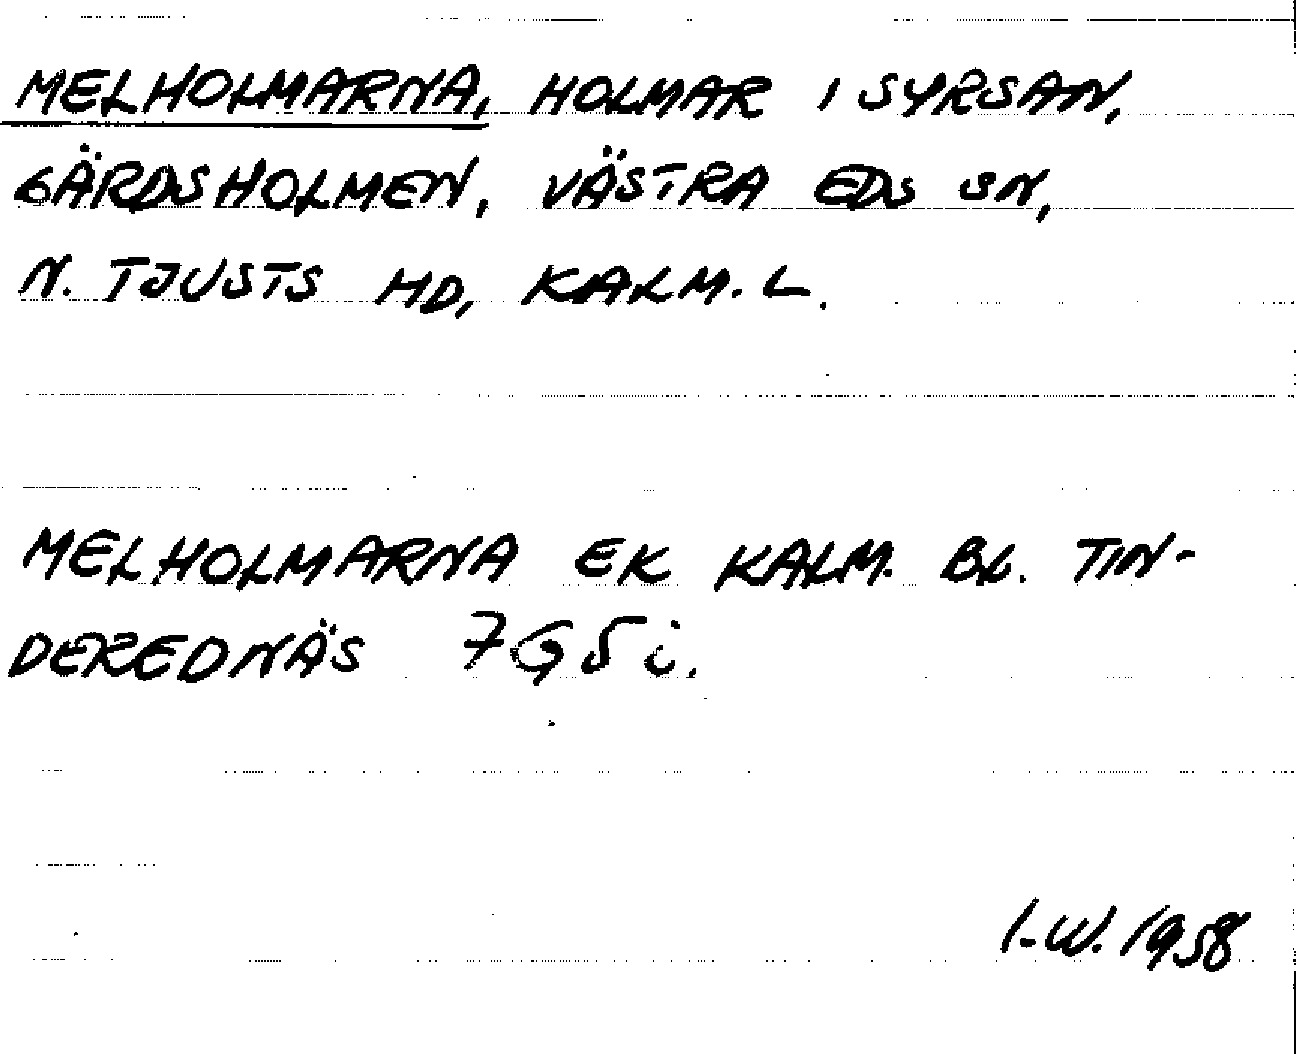 MELHOLMARNA, HOLMAR I SYRSAN,
GÄRDSHOLMEN, VÄSTRA EDS SN,
N. TJUSTS HD, KALM. L.
MELHOLMARNA EK KALM. BL. TIN-
DEREDNÄS 7G5i.
I-W. 1958